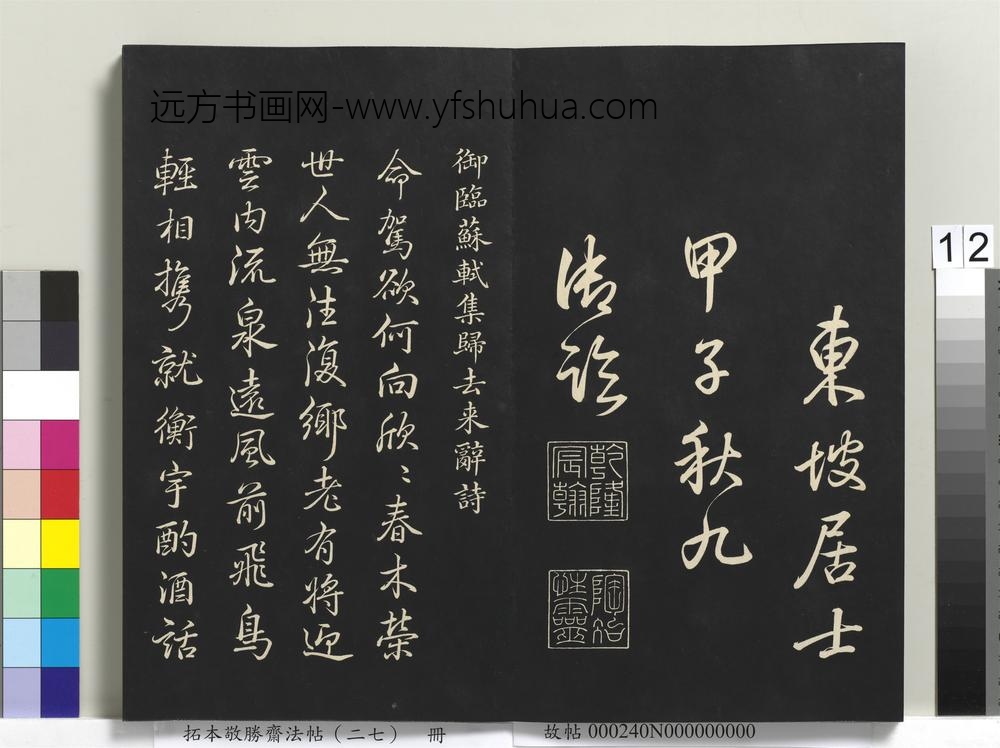 远方书画网-www.yfshuhua.com
東坡居士
甲子秋九
御臨
乾隆
宸翰
陶冶
性靈
御臨蘇軾集歸去来辭詩
命駕欲何向欣〻春木榮
世人無往復鄉老有將迎
雲内流泉遠風前飛鳥
輕相携就衡宇酌酒話
12
拓本敬勝齋法帖（二七） 冊
故帖 000240N000000000